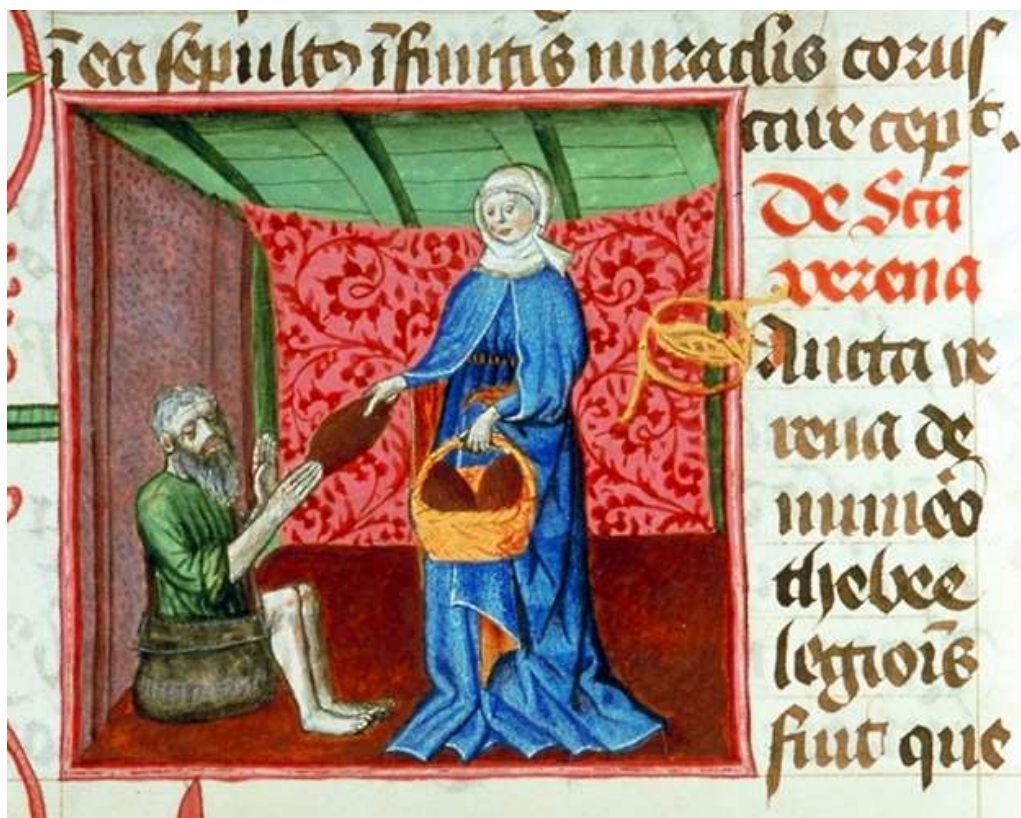 ī ea sepulto īfinitis miraclis corus
care cept.
De Scā
verena
Sancta ve
rena de
numēo
thebee
legioīs
fuit que